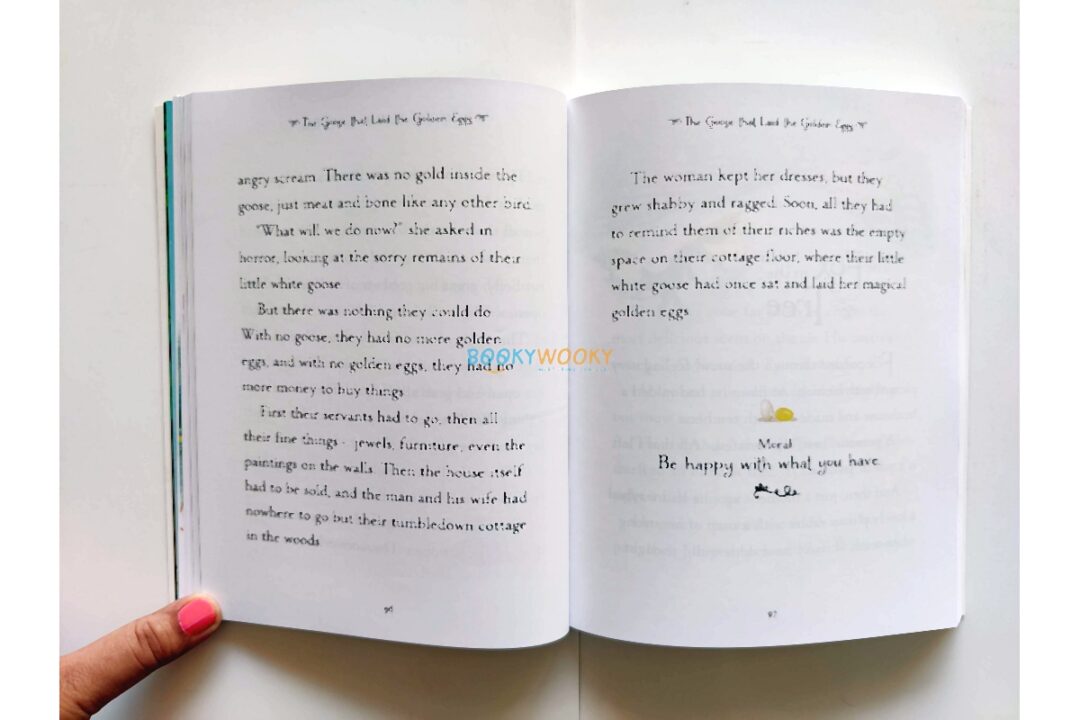 The Goose that Laid the Golden Eggs
angry scream. There was no gold inside the
goose, just meat and bone like any other bird.
"What will we do now?" she asked in
horror, looking at the sorry remains of their
little white goose.
But there was nothing they could do.
With no goose, they had no more golden
eggs, and with no golden eggs, they had no
more money to buy things.
First their servants had to go, then all
their fine things - jewels, furniture, even the
paintings on the walls. Then the house itself
had to be sold, and the man and his wife had
nowhere to go but their tumbledown cottage
in the woods.
96
The Goose that Laid the Golden Eggs
The woman kept her dresses, but they
grew shabby and ragged. Soon, all they had
to remind them of their riches was the empty
space on their cottage floor, where their little
white goose had once sat and laid her magical
golden eggs.
Moral
Be happy with what you have.
97
BOOKYWOOKY